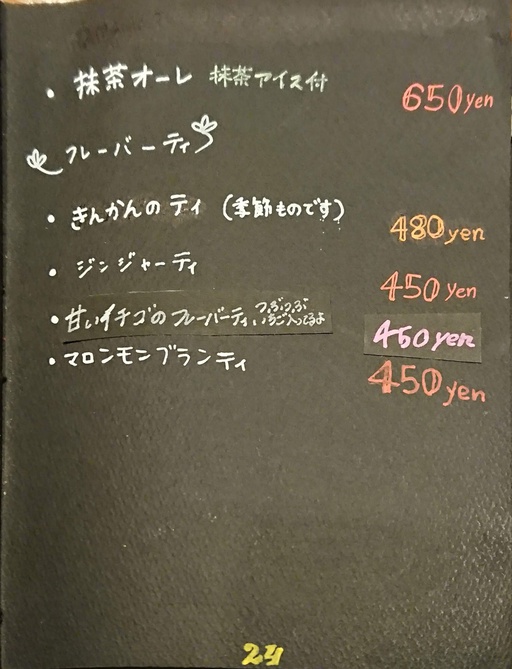 ・抹茶オーレ 抹茶アイス付 650yen
フレーバーティ
・きんかんのティ (季節ものです) 480yen
・ジンジャーティ 450yen
・甘いイチゴのフレーバーティ つぶつぶいちご入ってるよ 450yen
・マロンモンブランティ 450yen
24